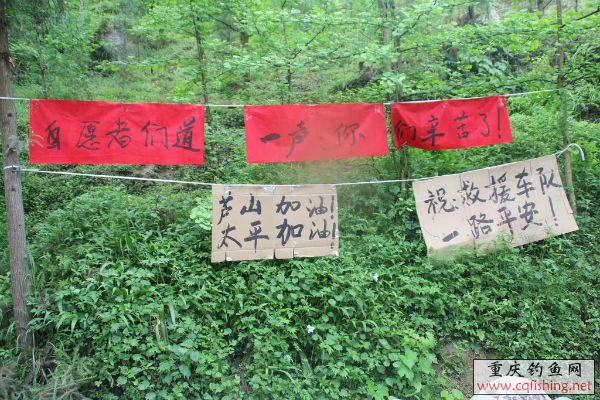 自愿者们道
一声:你
们辛苦了!
芦山加油!
太平加油!
祝:救援车队
一路平安!
重庆钓鱼网
www.cqfishing.net